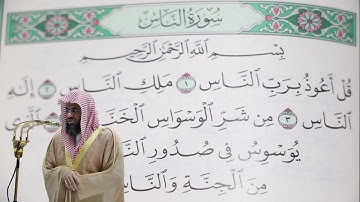 سُورَةُ النَّاسِ
بِسْمِ اللَّهِ الرَّحْمَٰنِ الرَّحِيمِ
قُلْ أَعُوذُ بِرَبِّ النَّاسِ ١ مَلِكِ النَّاسِ ٢ إِلَٰهِ
النَّاسِ ٣ مِن شَرِّ الْوَسْوَاسِ
يُوَسْوِسُ فِي صُدُورِ
مِنَ الْجِنَّةِ وَالنَّاسِ